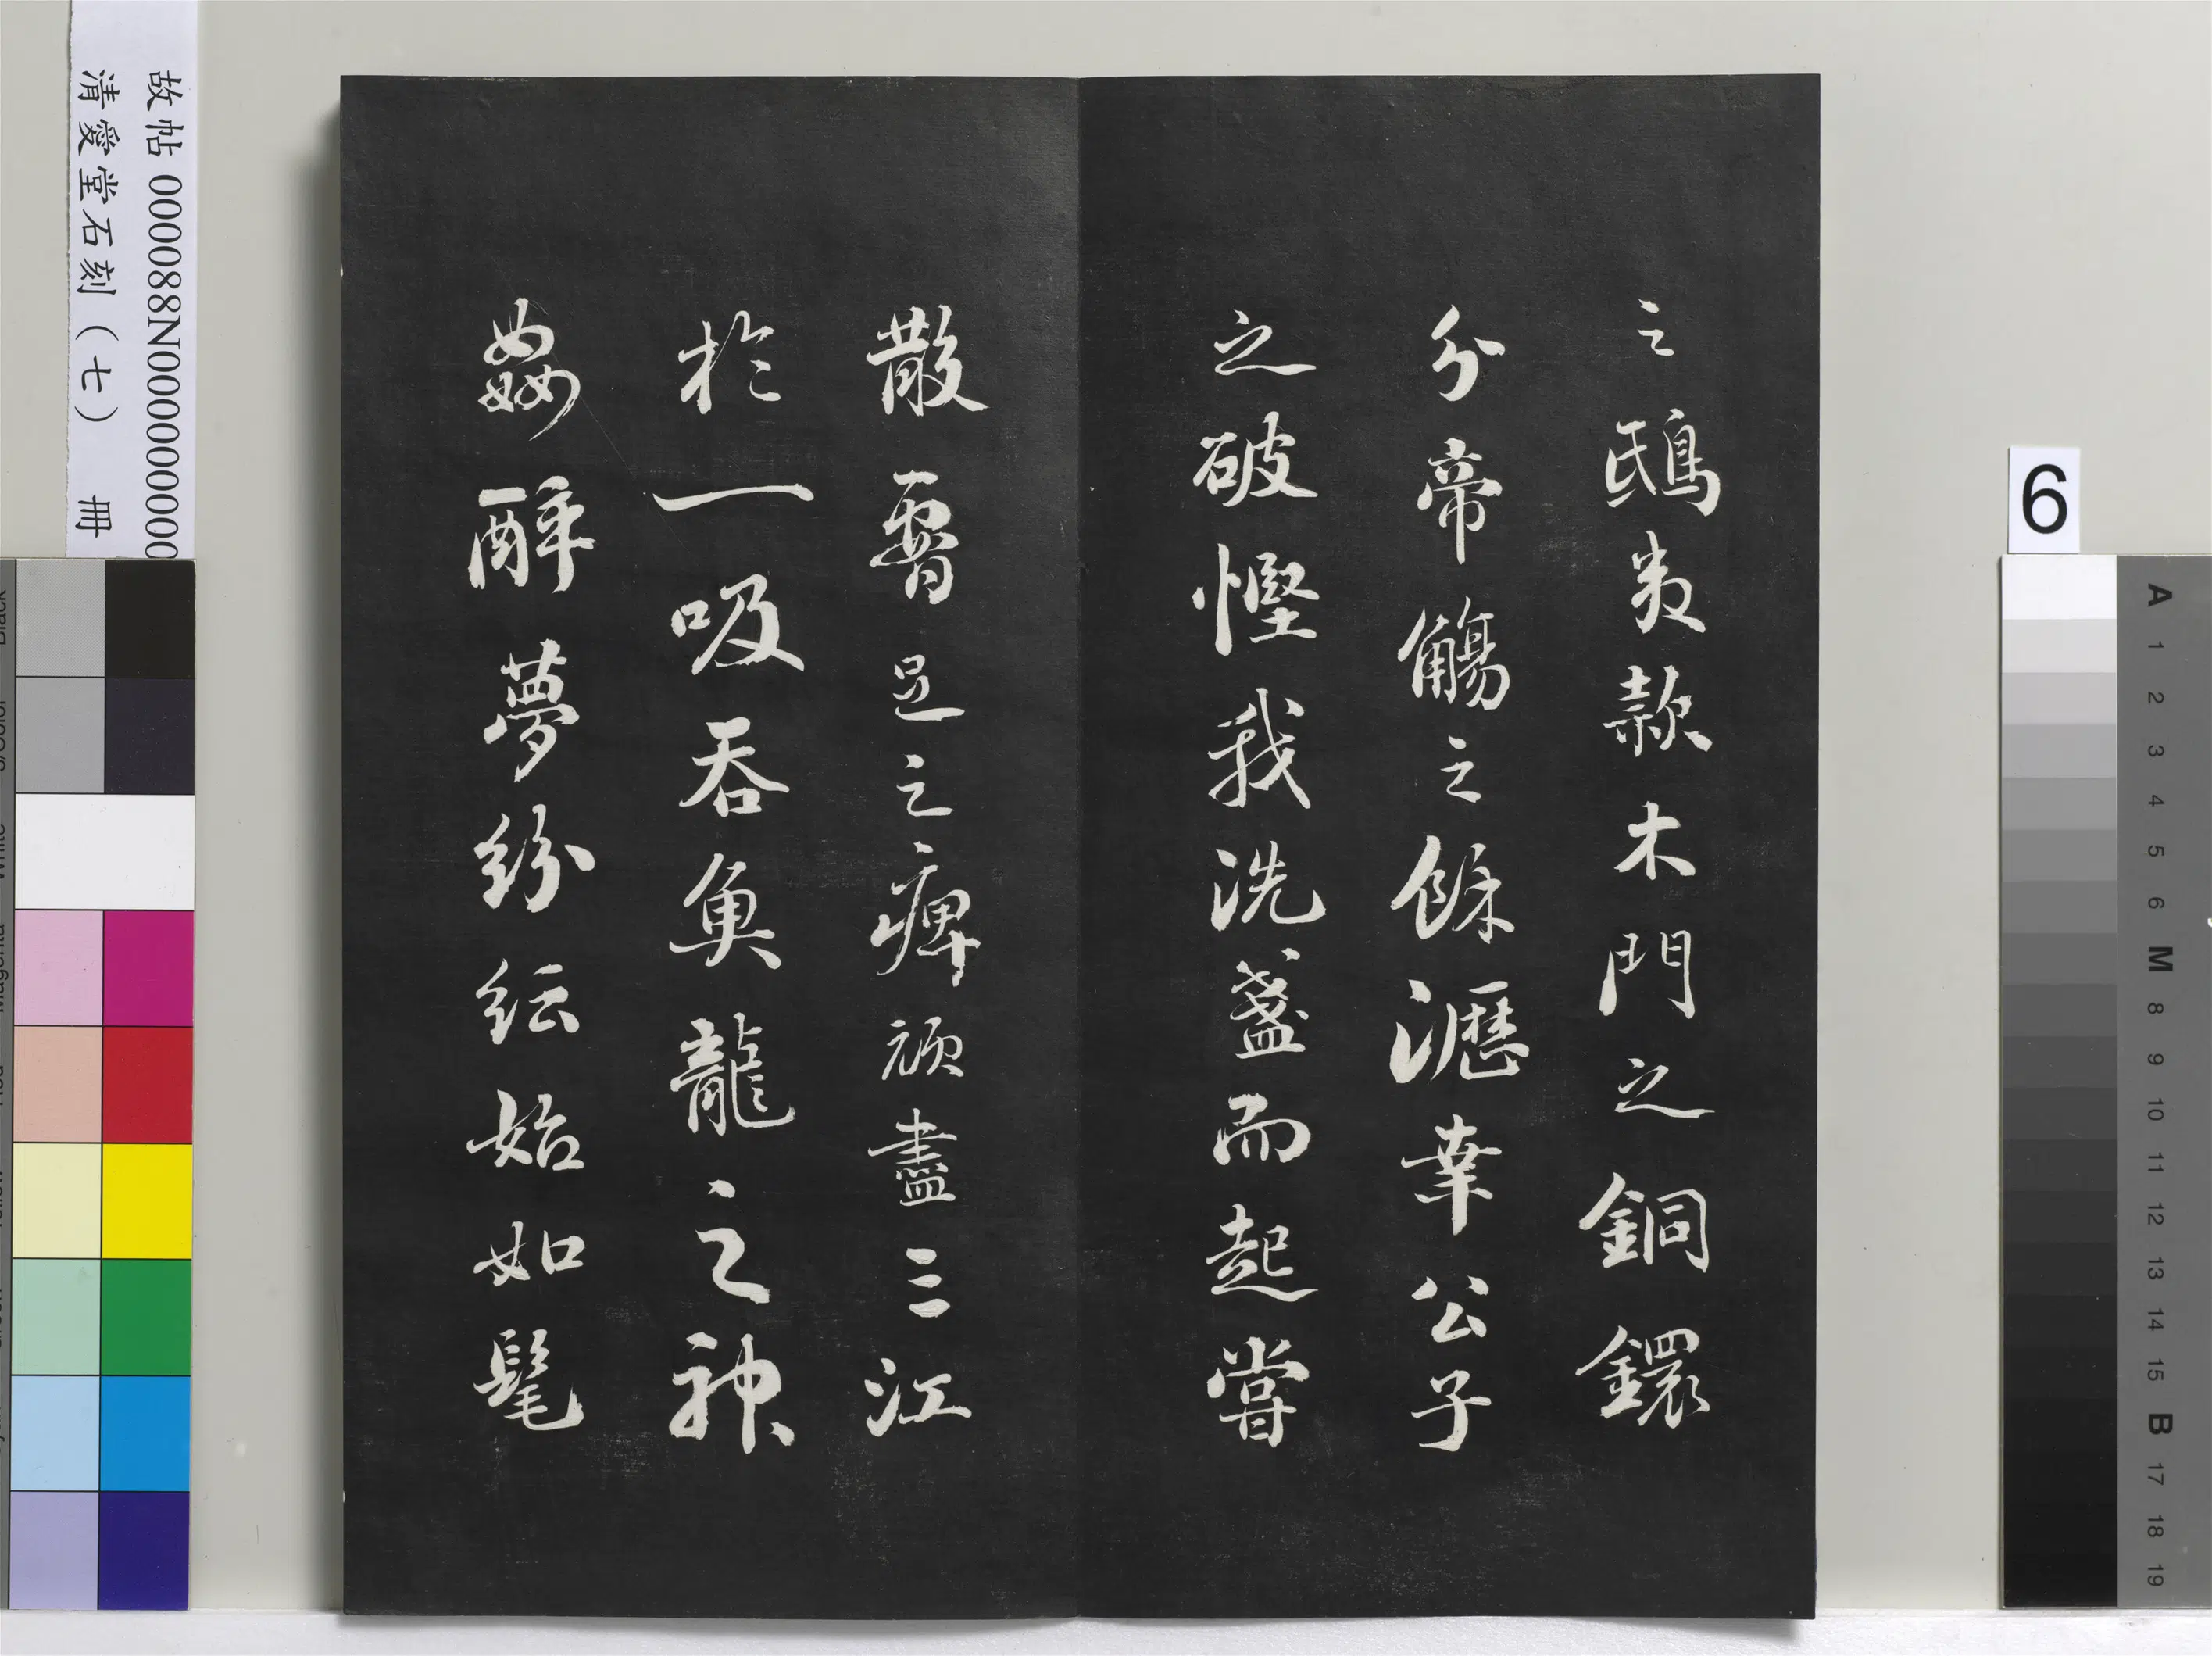 之鴟夷款木門之銅鐶
分帝觴之餘瀝幸公子
之破慳我洗盞而起嘗
散腰足之痺頑盡三江
於一吸吞魚龍之神
姦醉夢紛紜始如髦
故帖 000088N000000000
清愛堂石刻（七） 冊
6
A
1
2
3
4
5
6
M
8
9
10
11
12
13
14
15
B
17
18
19